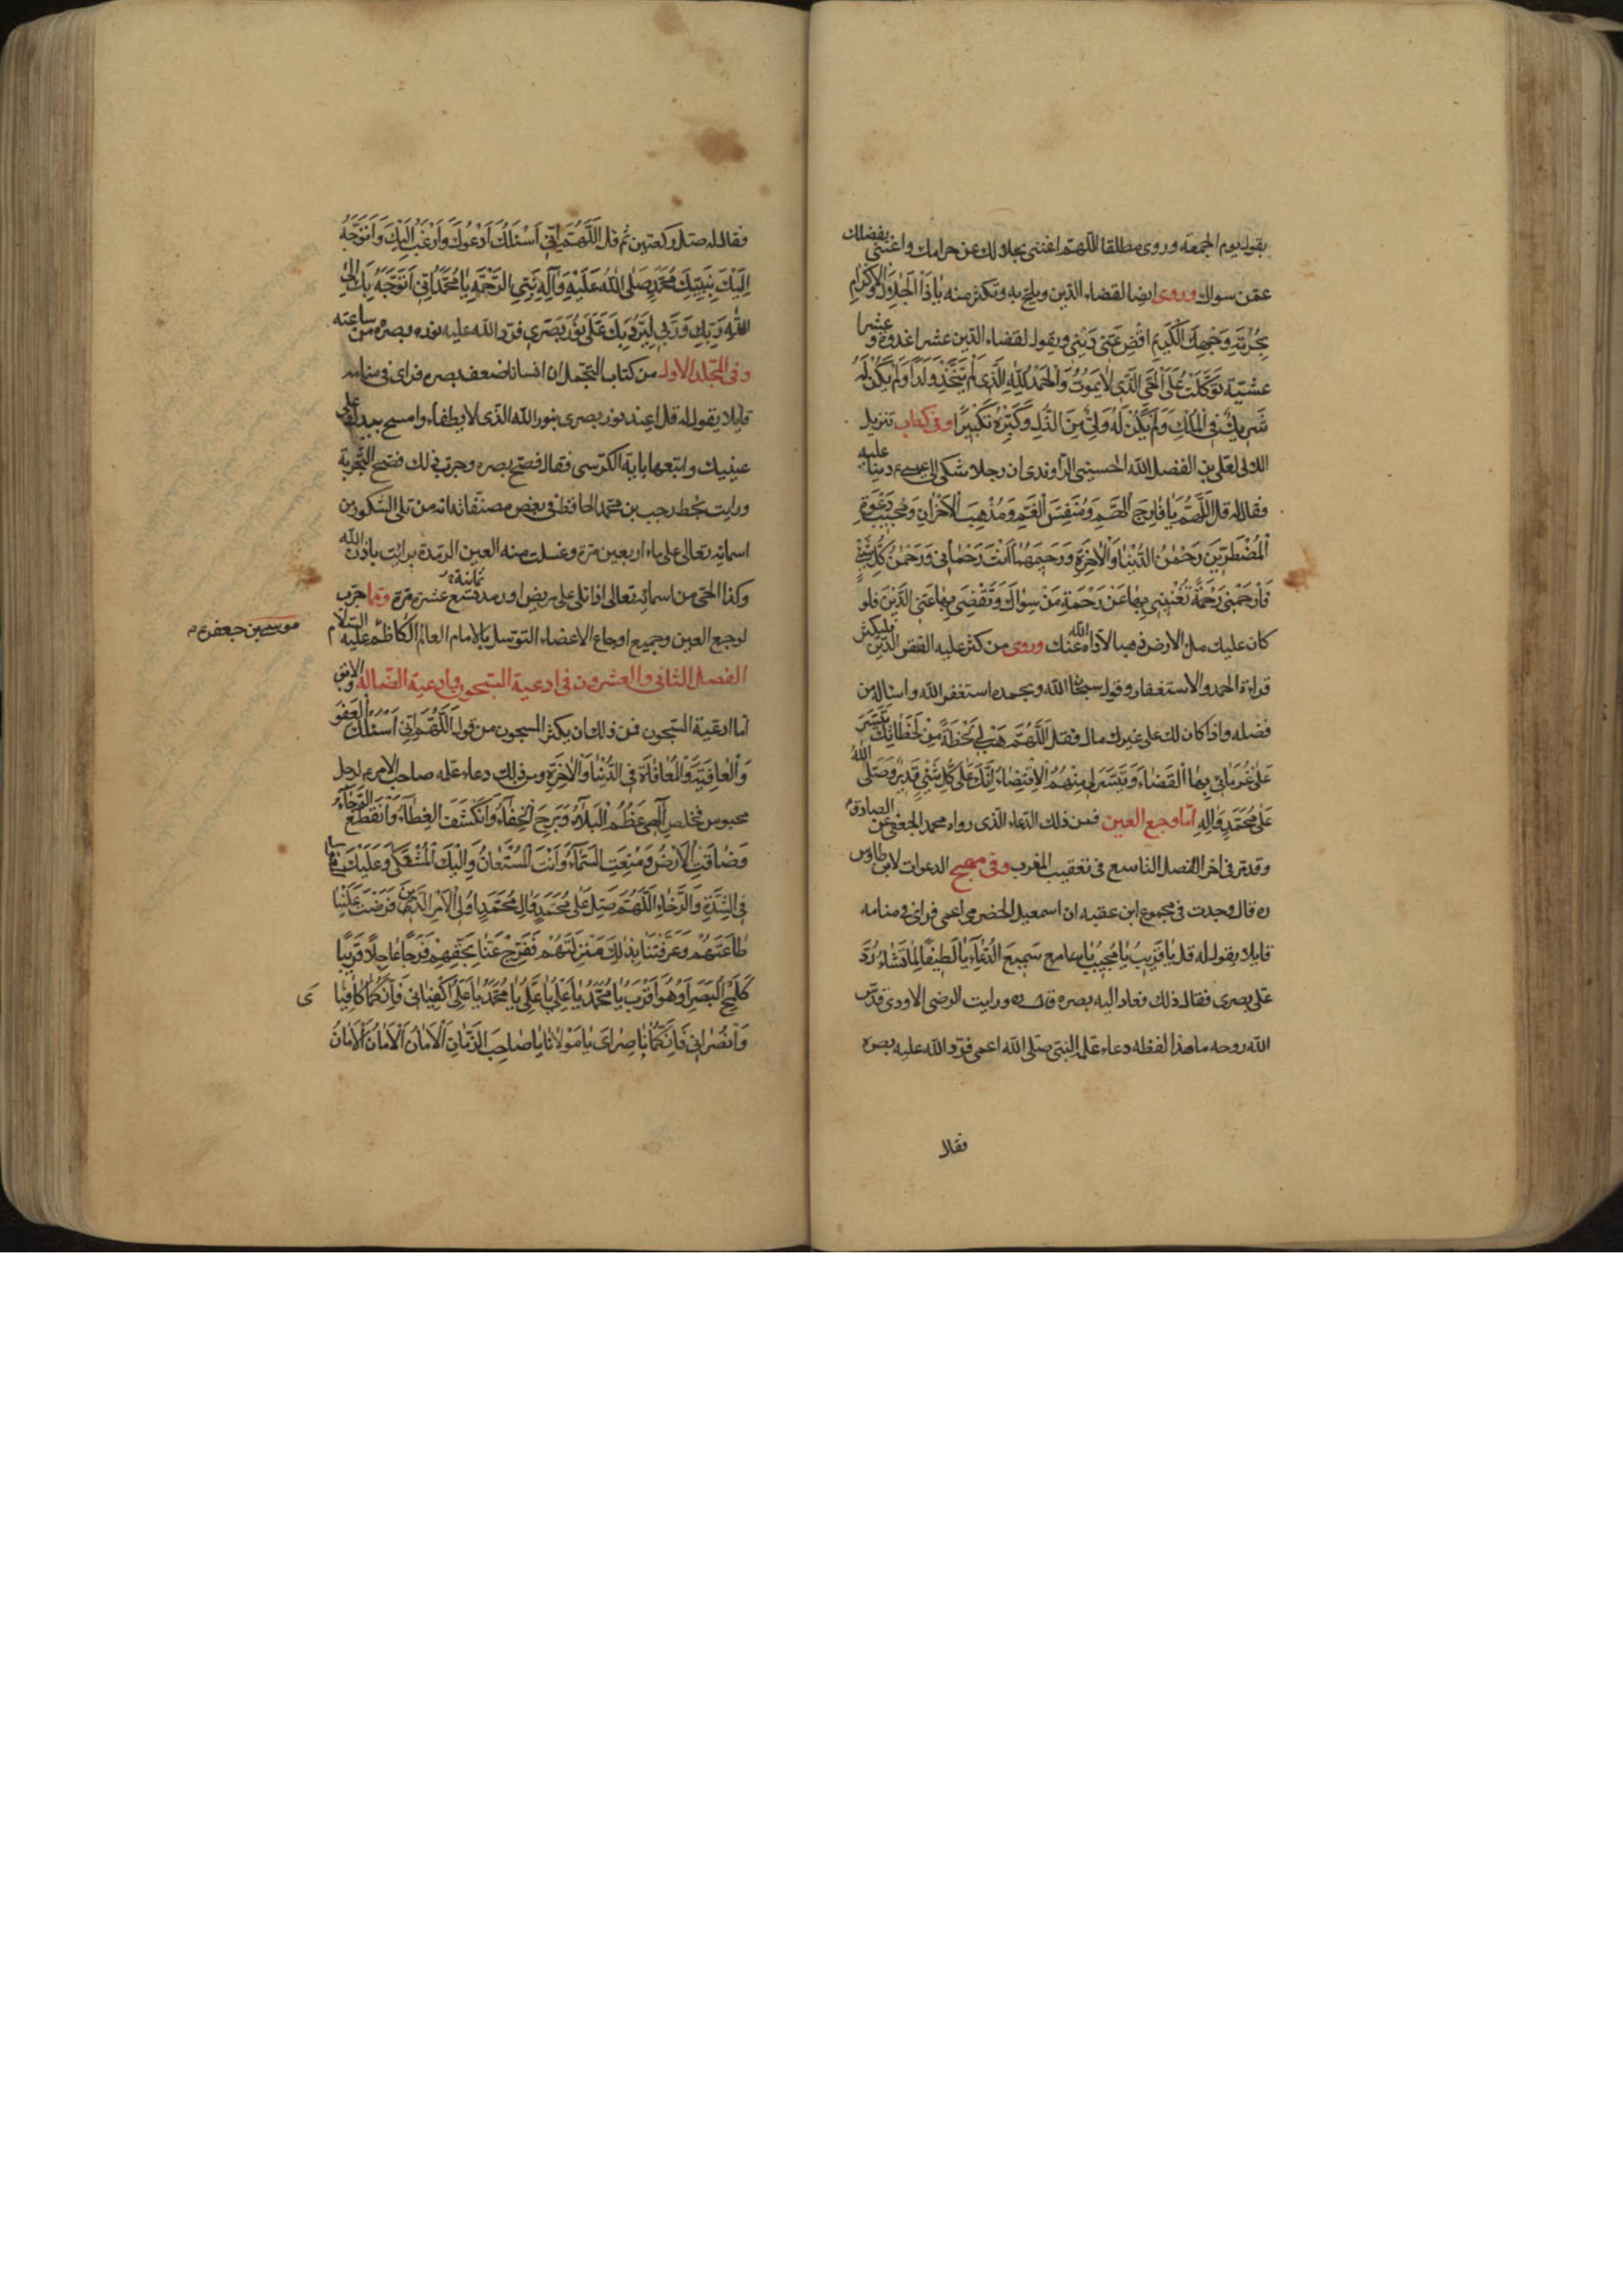 يقول يوم الجمعة وروى مطلقا اللهم اغننى بحلالك عن حرامك واغننى بفضلك
عمن سواك وروى ايضا لقضاء الدين ويلح به وتكثر منه يا ذَا الْجَلَالِ وَالْاِكْرٰامِ
بِحُرْمَةِ وَجْهِكَ الْكَرِيمِ اقْضِ عَنّى دَيْنِى ويقول لقضاء الدين عشرا غدوة وعشرا
عشية تَوَكَّلْتُ عَلَى الْحَىِّ الَّذى لٰا يَمُوتُ وَالْحَمْدُ لِلّٰهِ الَّذى لَمْ يَتَّخِذْ وَلَدًا وَلَمْ يَكُنْ لَهُ
شَرِيكٌ فِى الْمُلْكِ وَلَمْ يَكُنْ لَهُ وَلِىٌّ مِنَ الذُّلِّ وَكَبِّرْهُ تَكْبِيرًا وفى كتاب تنزيل
اللالى لعلى بن الفضل الله الحسينى الراوندى ان رجلا شكى الى عيسى ع دينا عليه
فقال له قل اَللّٰهُمَّ يٰا فٰارِجَ الْهَمِّ وَمُنَفِّسَ الْغَمِّ وَمُذْهِبَ الْاَحْزٰانِ وَمُجِيبَ دَعْوَةِ
الْمُضْطَرّينَ رَحْمٰنُ الدُّنْيٰا وَالْاٰخِرَةِ وَرَحِيمَهُمٰا اَنْتَ رَحْمٰانِى وَرَحْمٰنُ كُلِّ شَىْءٍ
فَارْحَمْنِى رَحْمَةً تُغْنِينِى بِهٰا عَنْ رَحْمَةِ مَنْ سِوٰاكَ وَتَقْضِى بِهٰا عَنّى الدَّيْنَ فلو
كان عليك ملأ الارض ذهبا لاداه الله عنك وروى من كثر عليه الفقر الدين فليكثر
قراءة الحمد والاستغفار وقول سبحان الله وبحمده استغفر الله واسئاله من
فضله واذا كان لك على غيرك مال فقل اَللّٰهُمَّ هَبْ لِى لَحْظَةً مِنْ لَحَظٰاتِكَ تَيَسَّرَ
عَلٰى غُرَمٰائِى بِهٰا الْقَضٰاءَ وَتَيَسَّرَ لِى مِنْهُمُ الْاِقْتِضٰاءُ اِنَّكَ عَلٰى كُلِّ شَىْءٍ قَدِيرٌ وَصَلَّى اللهُ
عَلٰى مُحَمَّدٍ وَاٰلِهِ امّا وجع العين فمن ذلك الدعاء الذى رواه محمد الجعفى عن الصادق ع
وقد مر فى اخر الفصل التاسع فى تعقيب المغرب وفى مهج الدعوات لابن طاوس
ره قال وجدت فى مجموع ابن عقبه ان اسمعيل الحضرمى اعمى فراى فى منامه
قايلا يقول له قل يٰا قَرِيبُ يٰا مُجِيبُ يٰا سامع سَمِيعَ الدُّعٰاءِ يٰا لَطِيفًا لِمٰا تَشٰاءُ رُدَّ
على بصرى فقال ذلك فعاد اليه بصره ورايت الرضى الاودى قدس
الله روحه ما هذا لفظه دعاء علمه النبى صلى الله اعمى فرد الله عليه بصره
فقال
فقال له صل ركعتين ثم قل اَللّٰهُمَّ اِنّى اَسْئَلُكَ اَدْعُوكَ وَاَرْغَبُ اِلَيْكَ وَاَتَوَجَّهُ
اِلَيْكَ بِنَبِيِّكَ مُحَمَّدٍ صَلَّى اللهُ عَلَيْهِ وَآلِهِ نَبِىِّ الرَّحْمَةِ يٰا مُحَمَّدُ اِنّى اَتَوَجَّهُ بِكَ اِلَى
اللهِ رَبِّكِ وَرَبّى لِيَرُدَّ بِكَ عَلَىَّ نُورَ بَصَرِى فرد الله عليه نوره بصره من ساعته
وفى المجلد الاول من كتاب التجمل ان انسانا ضعف بصره فراى فى منامه
قايلا يقول له قل اعيذ نور بصرى بنور الله الذى لا يطفاء وامسح بيدك على
عينيك واتبعها باية الكرسى فقال فصح بصره وجرب ذلك فصح التجربة
ورايت بخط رجب بن محمد الحافظ فى بعض مصنفاته انه من تلى الشكور من
اسمائه تعالى على ماء اربعين مرة وغسلت منه العين الرمدة برائت باذن الله
وكذا الحى من اسمائه تعالى اذا تلى على مريض او رمد تسع عشرة مرة ثمانية ومما جرب
لوجع العين وجميع اوجاع الاعضاء التوسل بالامام العالم الكاظم عليه السلام
موسى بن جعفر ع م
الفصل الثانى والعشرون فى ادعية السجون وادعية الضالة والابق
اما ادعية السجون فمن ذلك ان يكثر المسجون من قول اَللّٰهُمَّ اِنّى اَسْئَلُكَ الْعَفْوَ
وَالْعٰافِيَةَ وَالْمُعٰافٰاةَ فِى الدُّنْيٰا وَالْاٰخِرَةِ ومن ذلك دعاء علمه صاحب الامر ع لرجل
محبوس فخلص اِلٰهِى عَظُمَ الْبَلٰاءُ وَبَرِحَ الْخِفٰاءُ وَانْكَشَفَ الْغِطٰاءُ وَانْقَطَعَ الرَّجٰاءُ
وَضٰاقَتِ الْاَرْضُ وَمُنِعَتِ السَّمٰاءُ وَاَنْتَ الْمُسْتَعٰانُ وَاِلَيْكَ الْمُشْتَكٰى وَعَلَيْكَ
فِى الشِّدَّةِ وَالرَّخٰاءِ اَللّٰهُمَّ صَلِّ عَلٰى مُحَمَّدٍ وَاٰلِ مُحَمَّدٍ اُولِى الْاَمْرِ الَّذِينَ فَرَضْتَ عَلَيْنٰا
طٰاعَتَهُمْ وَعَرَّفْتَنٰا بِذٰلِكَ مَنْزِلَتَهُمْ فَفَرِّجْ عَنّٰا بِحَقِّهِمْ فَرَجًا عٰاجِلًا قَرِيبًا
كَلَمْحِ الْبَصَرِ اَوْ هُوَ اَقْرَبُ يٰا مُحَمَّدُ يٰا عَلِىُّ يٰا عَلِىُّ يٰا مُحَمَّدُ يٰا مُحَمَّدُ يٰا عَلِىُّ اكْفِيٰانِى فَاِنَّكُمٰا كٰافِيٰا
ى
وَانْصُرٰانِى فَاِنَّكُمٰا نٰاصِرٰاىَ يٰا مَوْلٰانٰا يٰا صٰاحِبَ الزَّمٰانِ اَلْاَمٰانُ اَلْاَمٰانُ اَلْاَمٰانُ